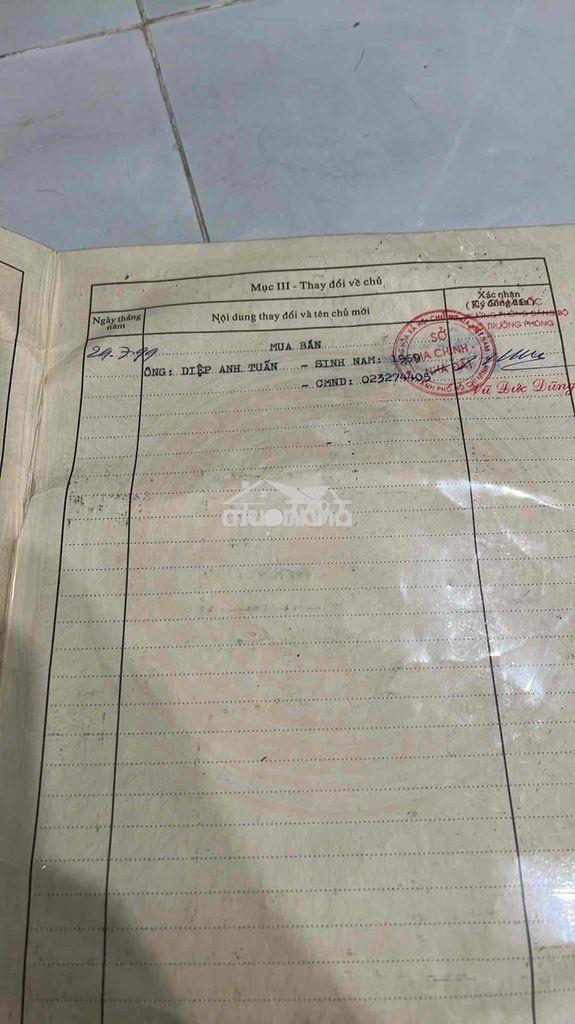 Mục III - Thay đổi về chủ
Ngày tháng năm
Nội dung thay đổi và tên chủ mới
Xác nhận
(Ký đóng dấu)
TRƯỞNG PHÒNG
29.7.99
MUA BÁN
ÔNG: DIỆP ANH TUẤN - SINH NĂM: 1960
- CMND: 023274405
SỞ
ĐỊA CHÍNH -
NHÀ ĐẤT
Vũ Đức Dũng
muonnha